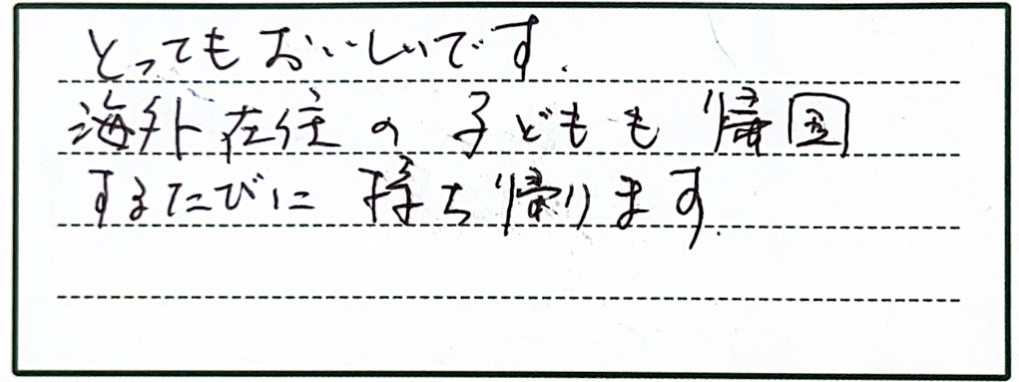 とってもおいしいです.
海外在住の子どもも帰国
するたびに持ち帰ります.